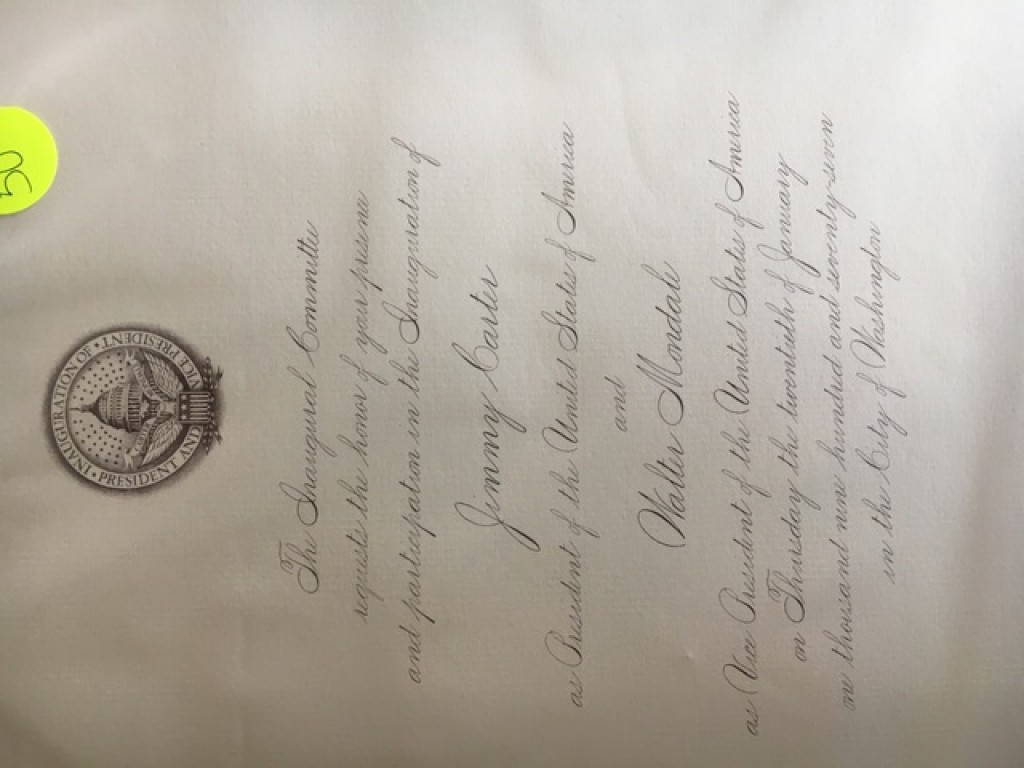 50
INAUGURATION OF PRESIDENT AND VICE PRESIDENT
The Inaugural Committee
requests the honor of your presence
and participation in the Inauguration of
Jimmy Carter
as President of the United States of America
and
Walter Mondale
as Vice President of the United States of America
on Thursday the twentieth of January
one thousand nine hundred and seventy-seven
in the City of Washington